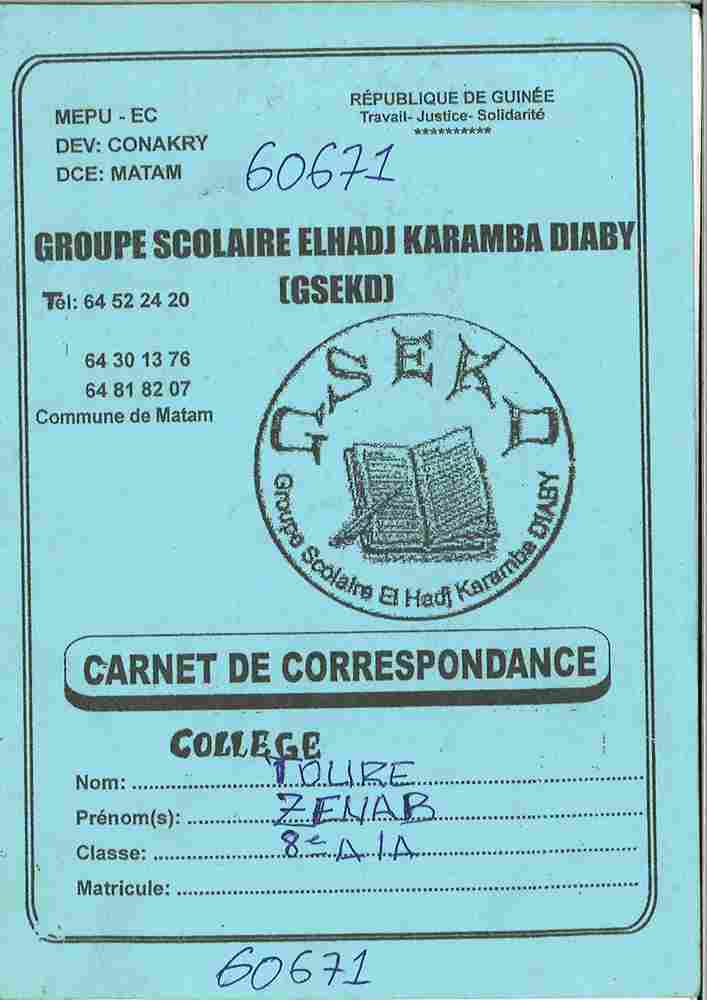 MEPU - EC
DEV: CONAKRY
DCE: MATAM
RÉPUBLIQUE DE GUINÉE
Travail- Justice- Solidarité
**********
60671
GROUPE SCOLAIRE ELHADJ KARAMBA DIABY
(GSEKD)
Tél: 64 52 24 20
64 30 13 76
64 81 82 07
Commune de Matam
GSEKD
Groupe Scolaire El Hadj Karamba DIABY
CARNET DE CORRESPONDANCE
COLLEGE
Nom: TOURE
Prénom(s): ZENAB
Classe: 8e A/A
Matricule:
60671